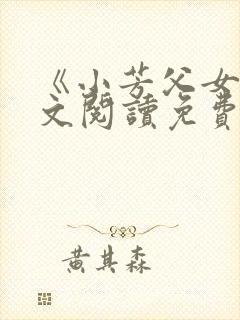 《小芳父女
文閱讀免費
黃其森